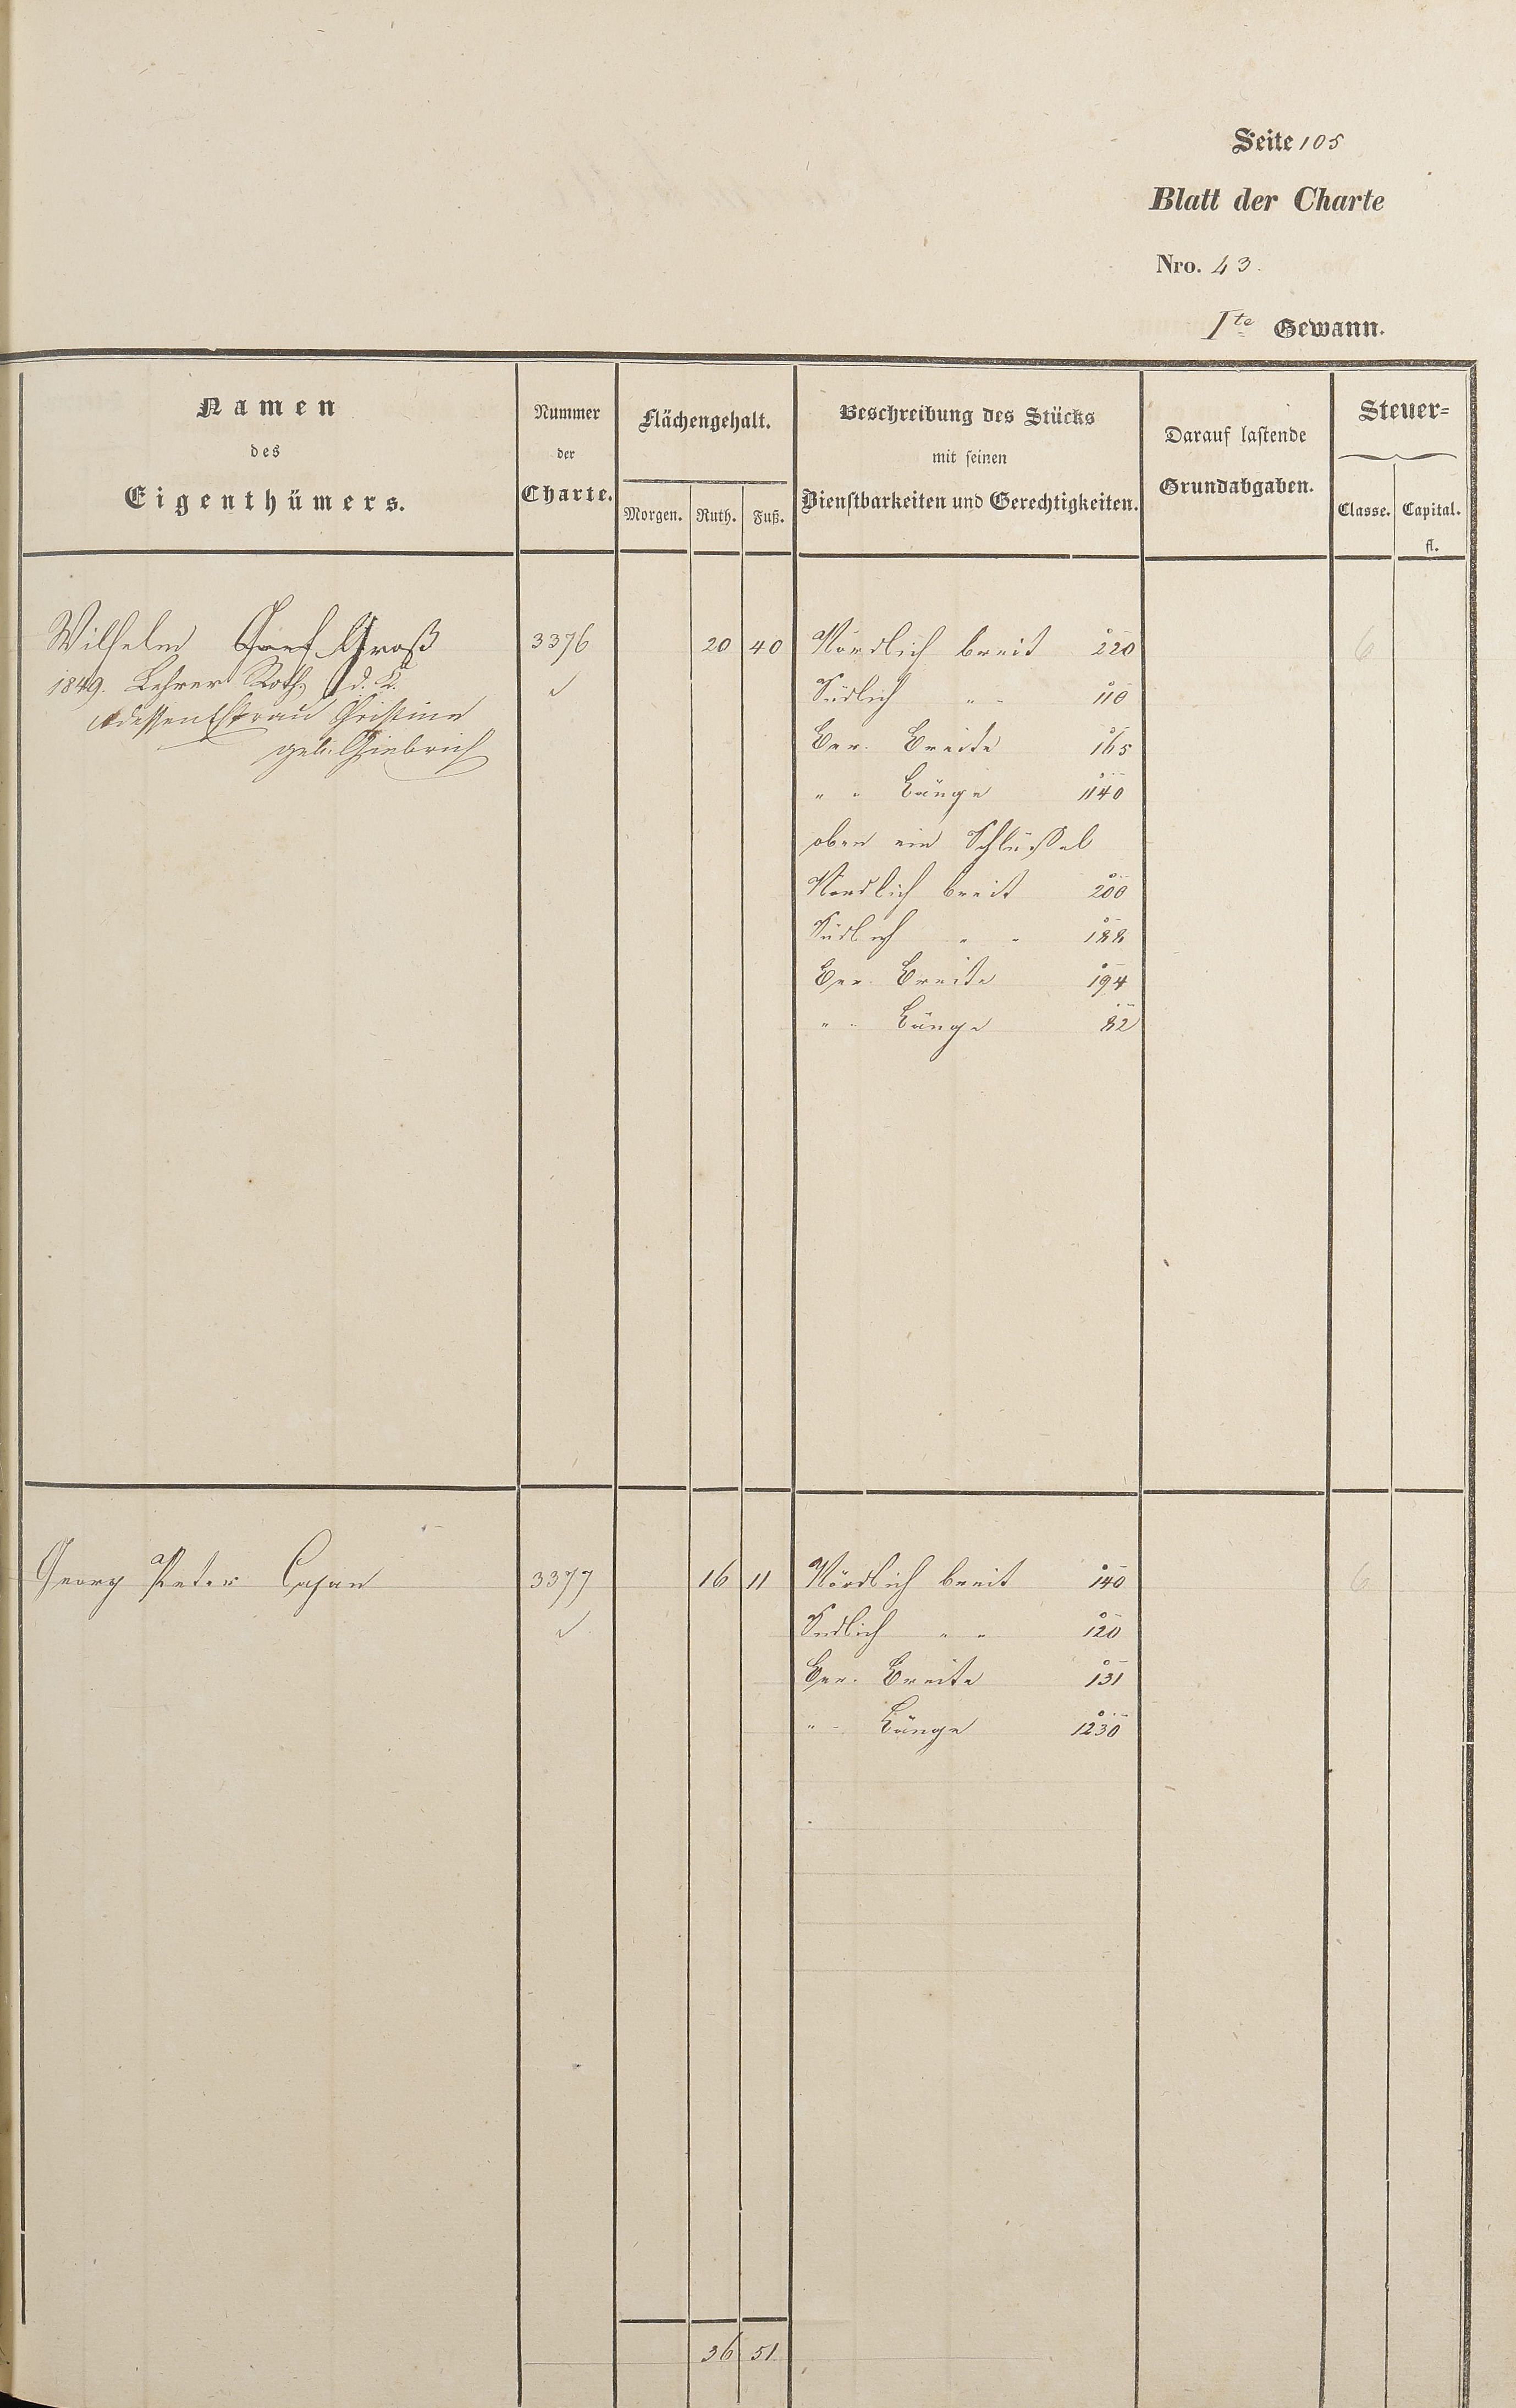 Seite 105
Blatt der Charte
Nro. 43.
Ite Gewann.
Namen
des
Eigenthümers.
Nummer
der
Charte.
Flächengehalt.
Morgen. Ruth. Fuß.
Beschreibung des Stücks
mit seinen
Dienstbarkeiten und Gerechtigkeiten.
Darauf lastende
Grundabgaben.
Steuer=
Classe. Capital.
fl.
Wilhelm Groß 3376 20 40 Nördlich breit 220 6
1849. Lehrer Roth, d. K. Südlich " " 110
dessen Ehefrau Christine Ber. Breite 165
geb. " " Länge 1140
oben ein Schlüssel
Nördlich breit 200
Südlich " " 188
Ber. Breite 194
" " Länge 82
Georg Peter Cajan 3377 16 11 Nördlich breit 140 6
Südlich " " 120
Ber. Breite 131
" " Länge 1230
36 51